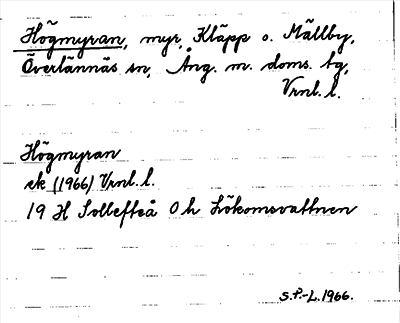 Högmyran, myr, Kläpp o. Mällby,
Överlännäs sn, Ång. m. doms. bg,
Vrnl. l.
Högmyran
ek (1966) Vrnl. l.
19 H Sollefteå 0 h Lökomsvattnen
S.P.-L. 1966.